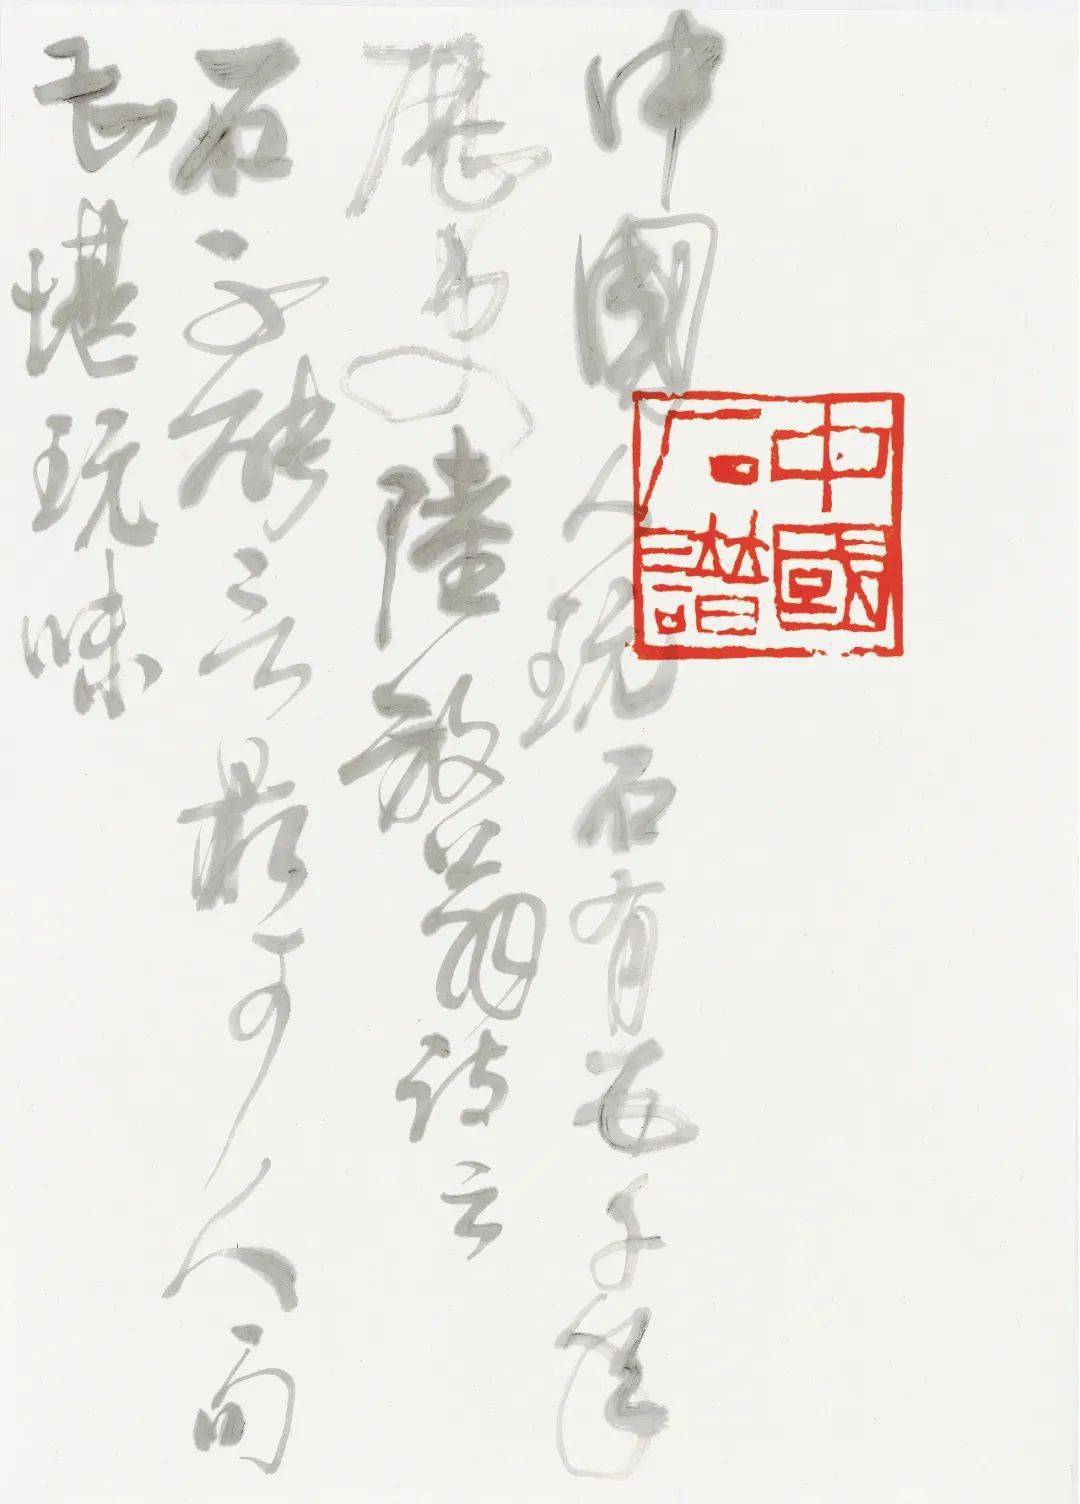 中國人玩石有千年
歷史陸放翁詩云
石不能言最可人句
堪玩味
中國
石譜